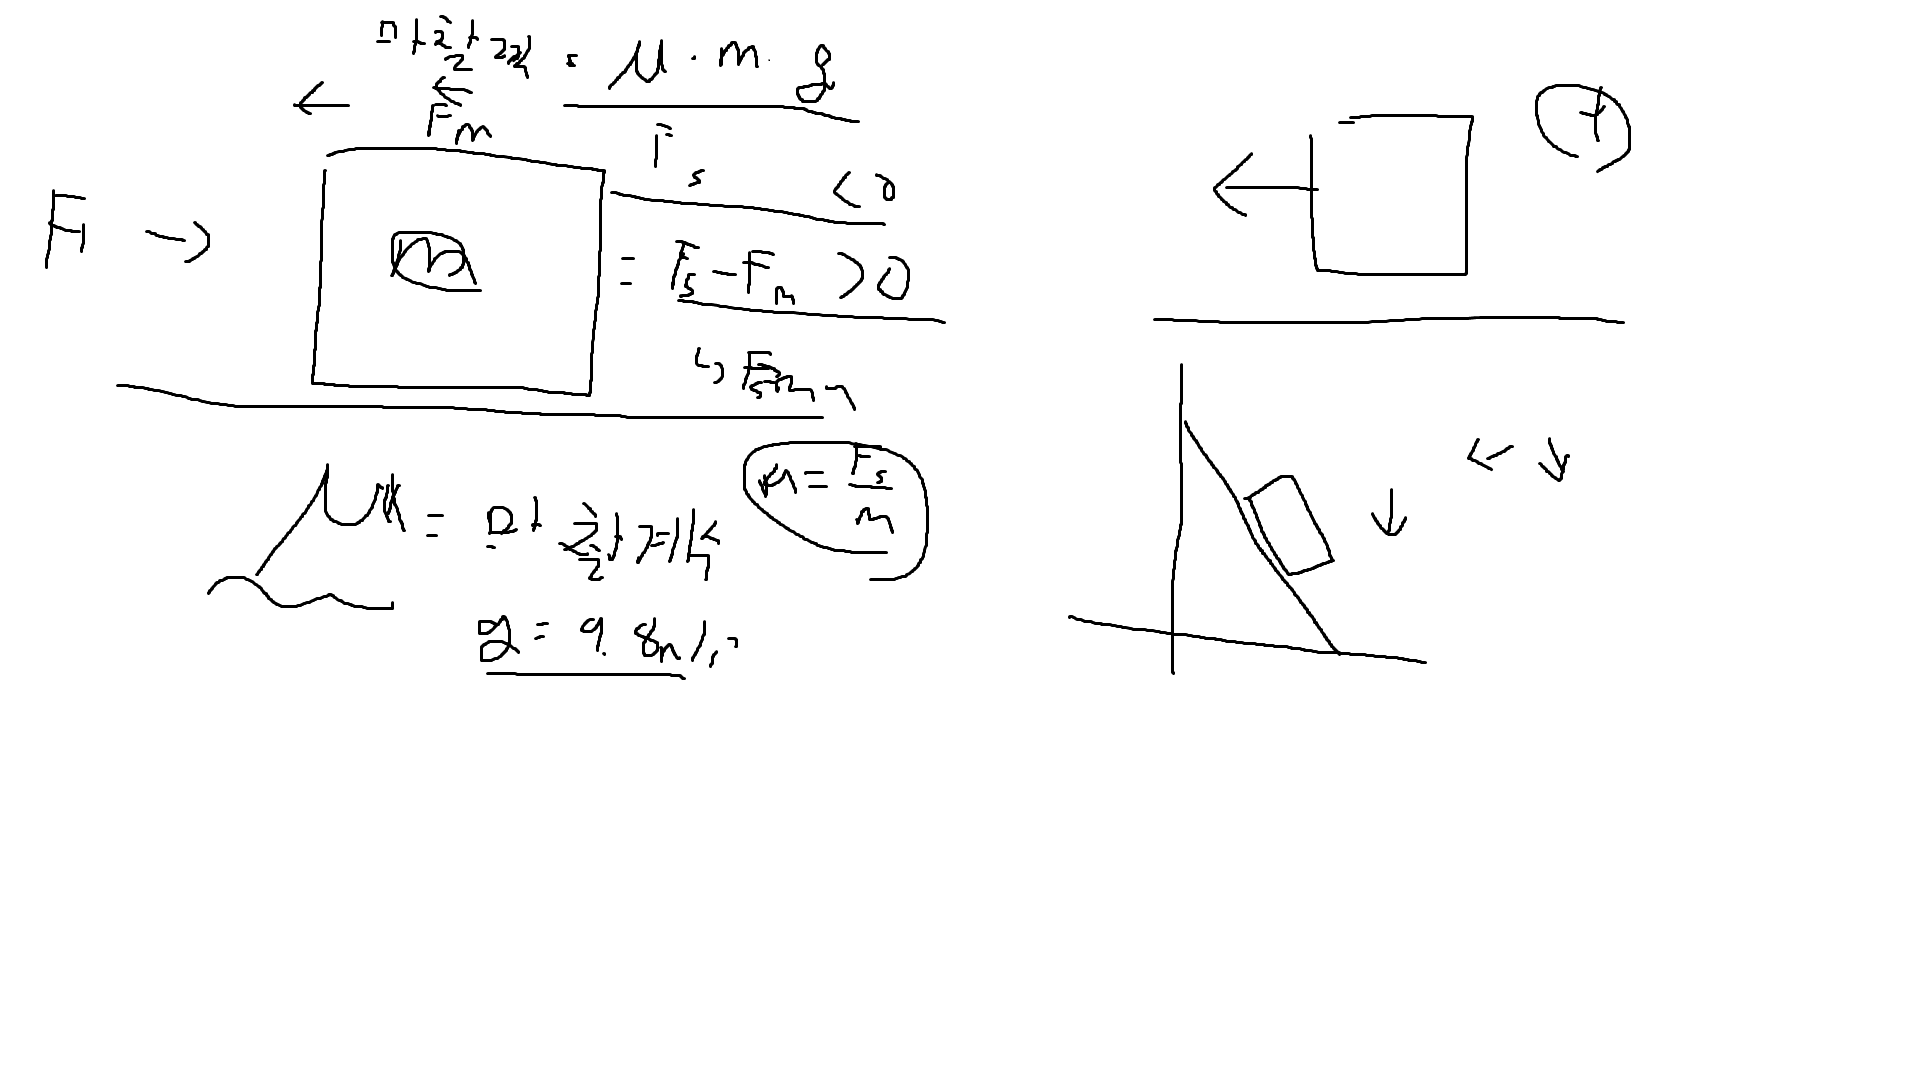 마찰력 = μ · m · g
← ←
Fm
Fs
< 0
F →
m
= Fs - Fm > 0
↳
μk = 마찰계수
m = Fs / m
g = 9.8m/s²
←
← ↓
↓